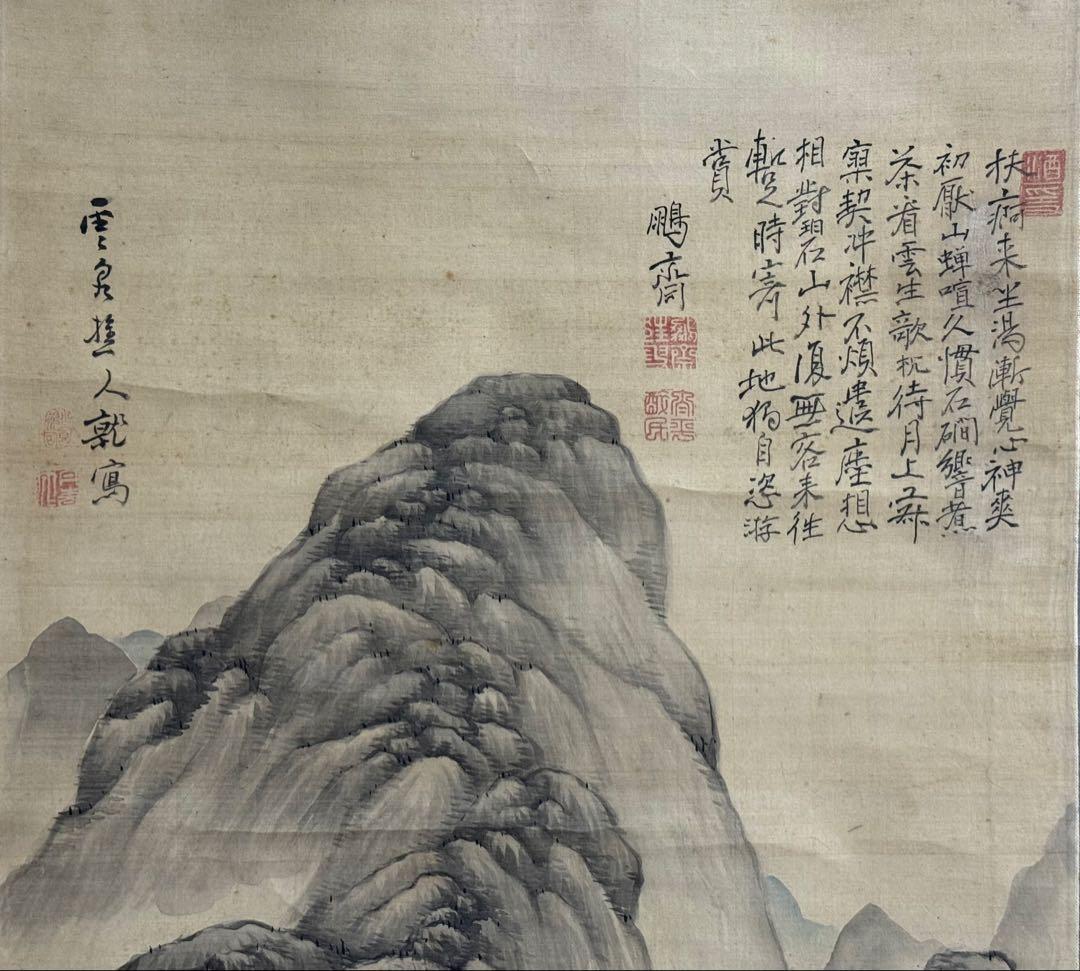 扶痾来坐湯漸覺心神爽
初厭山蝉喧久慣石礀響煮
茶看雲生欹枕待月上寂
寞契冲襟不煩遣塵想
相對碧山外復無客来徃
暫時寄此地獨自恣游
賞
鵬齋
雲泉樵人就寫